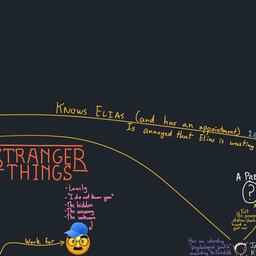 Knows Elias (and has an appointment)
Is annoyed that Elias is wasting
STRANGER
THINGS
- Lonely
- "I do not know you"
- The hidden
- The uncanny
- The unknown
Work for
A
?
Felt
the
Has an interesting
"psychological profile"
according to